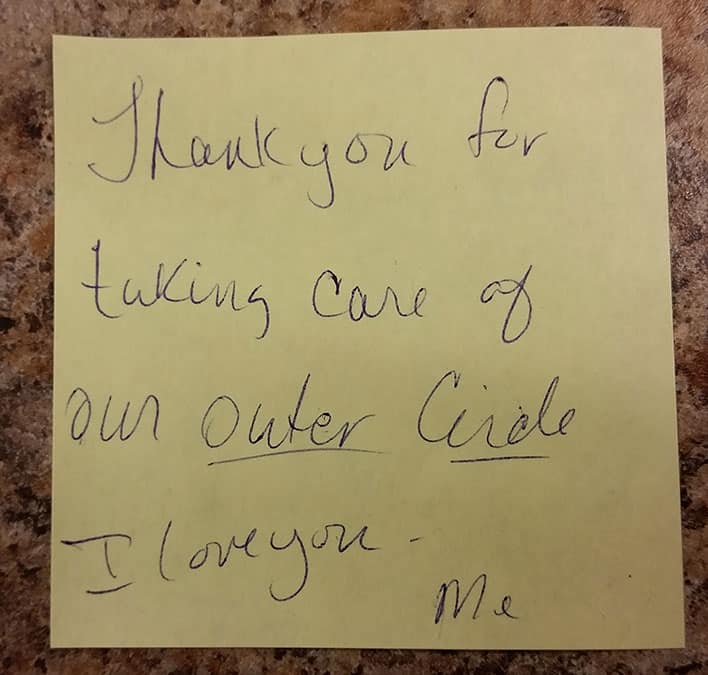 Thank you for
taking care of
our outer Circle
I love you -
Me